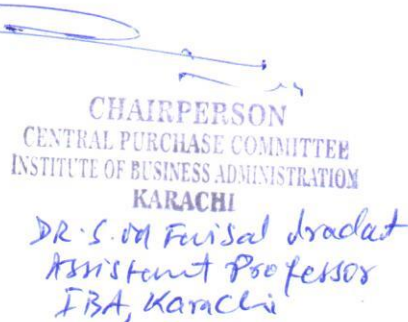 CHAIRPERSON
CENTRAL PURCHASE COMMITTEE
INSTITUTE OF BUSINESS ADMINISTRATION
KARACHI
DR. S. M Faisal Iradat
Assistant Professor
IBA, Karachi